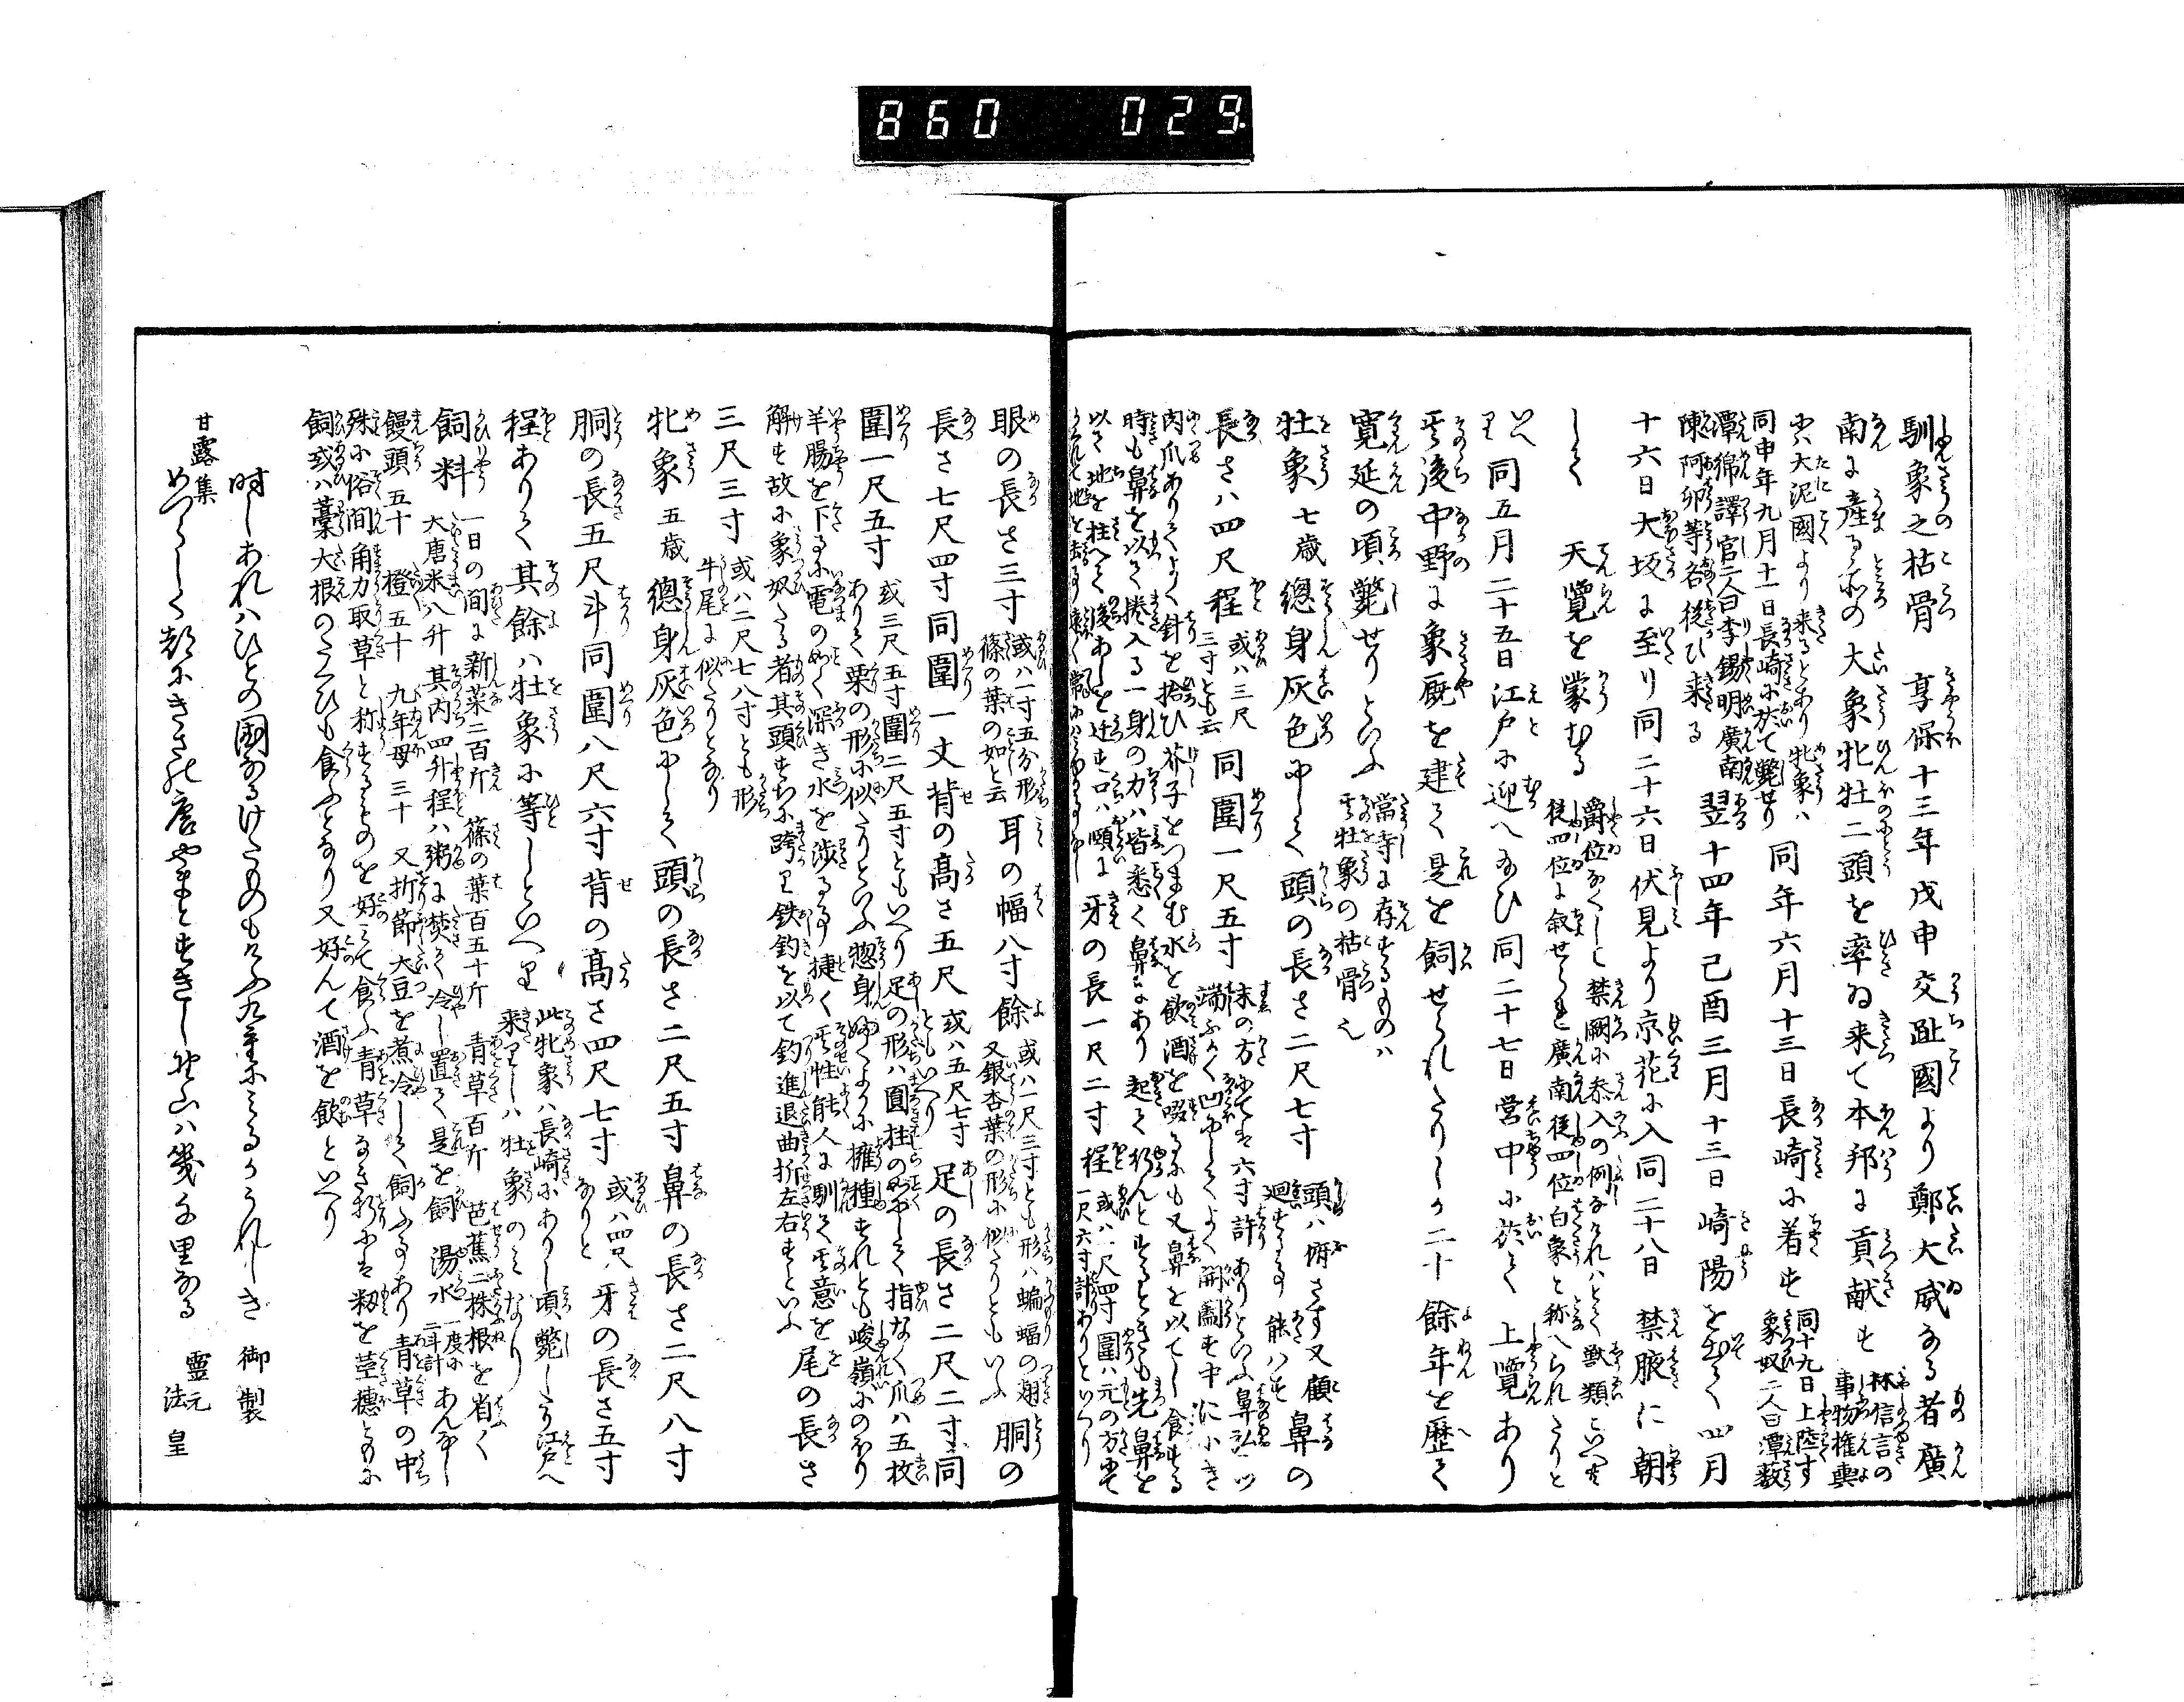 860 029
馴象之枯骨 享保十三年戊申交趾國より鄭大威なる者廣
南に産る所の大象牝牡二頭を率ゐ来て本邦に貢献す 林信言の事物権輿
に大泥國より来るとあり牝象ハ同申年九月十一日長崎に於て斃せり 同年六月十三日長崎に着す 同十九日上陸す象奴二人曰潭數
潭綿譯官二人曰李錫明廣南陳阿卯等各従ひ来る 翌十四年己酉三月十三日崎陽を出て四月
十六日大坂に至り同二十六日伏見より京花に入同二十八日 禁腋に朝
して 天覽を蒙むる 爵位なくして禁闕に参入の例なけれハとて獣類といへとも従四位に叙せられ廣南従四位白象と称へられたりと
いへり 同五月二十五日江戸に迎へ給ひ同二十七日営中に於て 上覽あり
其後中野に象厩を建て是を飼せられたりしか二十餘年を歴て
寛延の頃斃せりといふ 當寺に存するものハ其牡象の枯骨也
牡象 七歳 總身灰色にして頭の長さ二尺七寸 頭ハ俯さす又顧廻する事能ハす 鼻の
長さハ四尺程 或ハ三尺三寸とも云 同圍一尺五寸 末の方にてハ六寸許ありといふ鼻孔二ツ端ふかく凹にしてよく開闔す中に小き
肉爪ありてよく針を拾ひ芥子をつまむ水を飲酒を啜るにも又鼻を以てし食する
時も鼻を以て捲入る一身の力ハ皆悉く鼻にあり起て行んとするときも先鼻を
以さ地を柱へて後あしを
牙の長一尺二寸程 或ハ一尺四寸圍ハ元の方にて一尺六寸計ありといへり
眼の長さ三寸 或ハ一寸五分形篠の葉の如と云 耳の幅八寸餘 或ハ一尺三寸とも形ハ蝙蝠の翅又銀杏葉の形に似たりともいふ 胴の
長さ七尺四寸同圍一丈背の髙さ五尺 或ハ五尺七寸ともいへり 足の長さ二尺二寸同
圍一尺五寸 或三尺五寸圍二尺五寸ともいへり足の形ハ圓柱の如にして指なく爪ハ五枚ありて栗の形に似たりといふ惣身
羊腸を下るに電の如く深き水を渉る事捷く其性能人に馴て其意を
解す故に象奴たる者其頭すちに跨り鉄釣を以て釣進退曲折左右すといふ 尾の長さ
三尺三寸 或ハ二尺七八寸とも形牛尾に似たりとなり
牝象 五歳 總身灰色にして頭の長さ二尺五寸鼻の長さ二尺八寸
胴の長五尺斗同圍八尺六寸背の髙さ四尺七寸 或ハ四尺なりと 牙の長さ五寸
程ありて其餘ハ牡象に等しといへり 此牝象ハ長崎にありし頃斃したり江戸へ来りしハ牡象のミなり
飼料 一日の間に新菜二百斤 篠の葉百五十斤 青草百斤 芭蕉二株根を省く大唐米八升 其内四升程ハ粥に焚て冷し置て是を飼 湯水 一度に二斗計 あんなし
饅頭五十 橙五十 九年母三十 又折節大豆を煮冷して飼ふ事あり青草の中
殊に俗間角力取草と称するものを好ミて食ふ青草なき折にハ籾を莖穗ともに
飼或ハ藁大根のたくひも食ふとなり又好んて酒を飲といへり
時しあれハひとの國なるけたものもけふ九重にミるかうれしき 御製
甘露集
めつらしく都にきさの唐やまとすきし野山ハ幾千里なる 霊元法皇